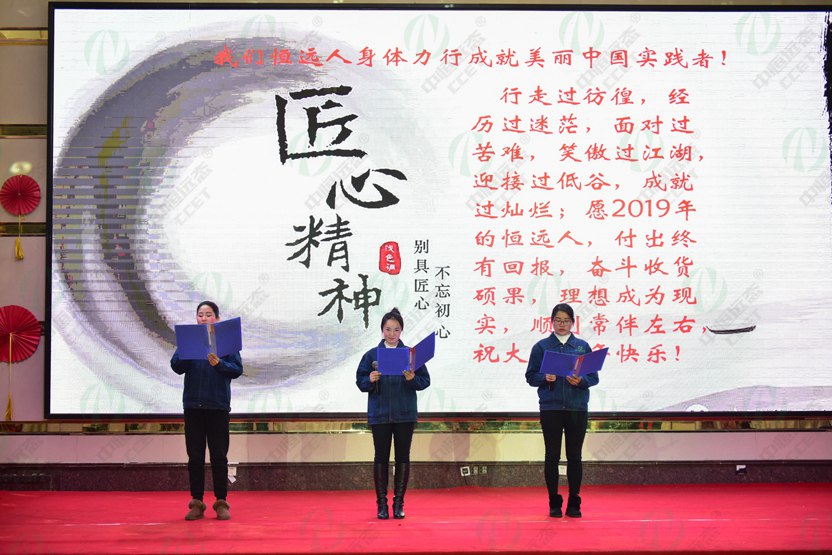 我们恒远人身体力行成就美丽中国实践者！
匠心精神
浅色调
别具匠心
不忘初心
行走过彷徨，经
历过迷茫，面对过
苦难，笑傲过江湖，
迎接过低谷，成就
过灿烂；愿2019年
的恒远人，付出终
有回报，奋斗收货
硕果，理想成为现
实，顺利常伴左右，
祝大
快乐！
中恒远态
CCET